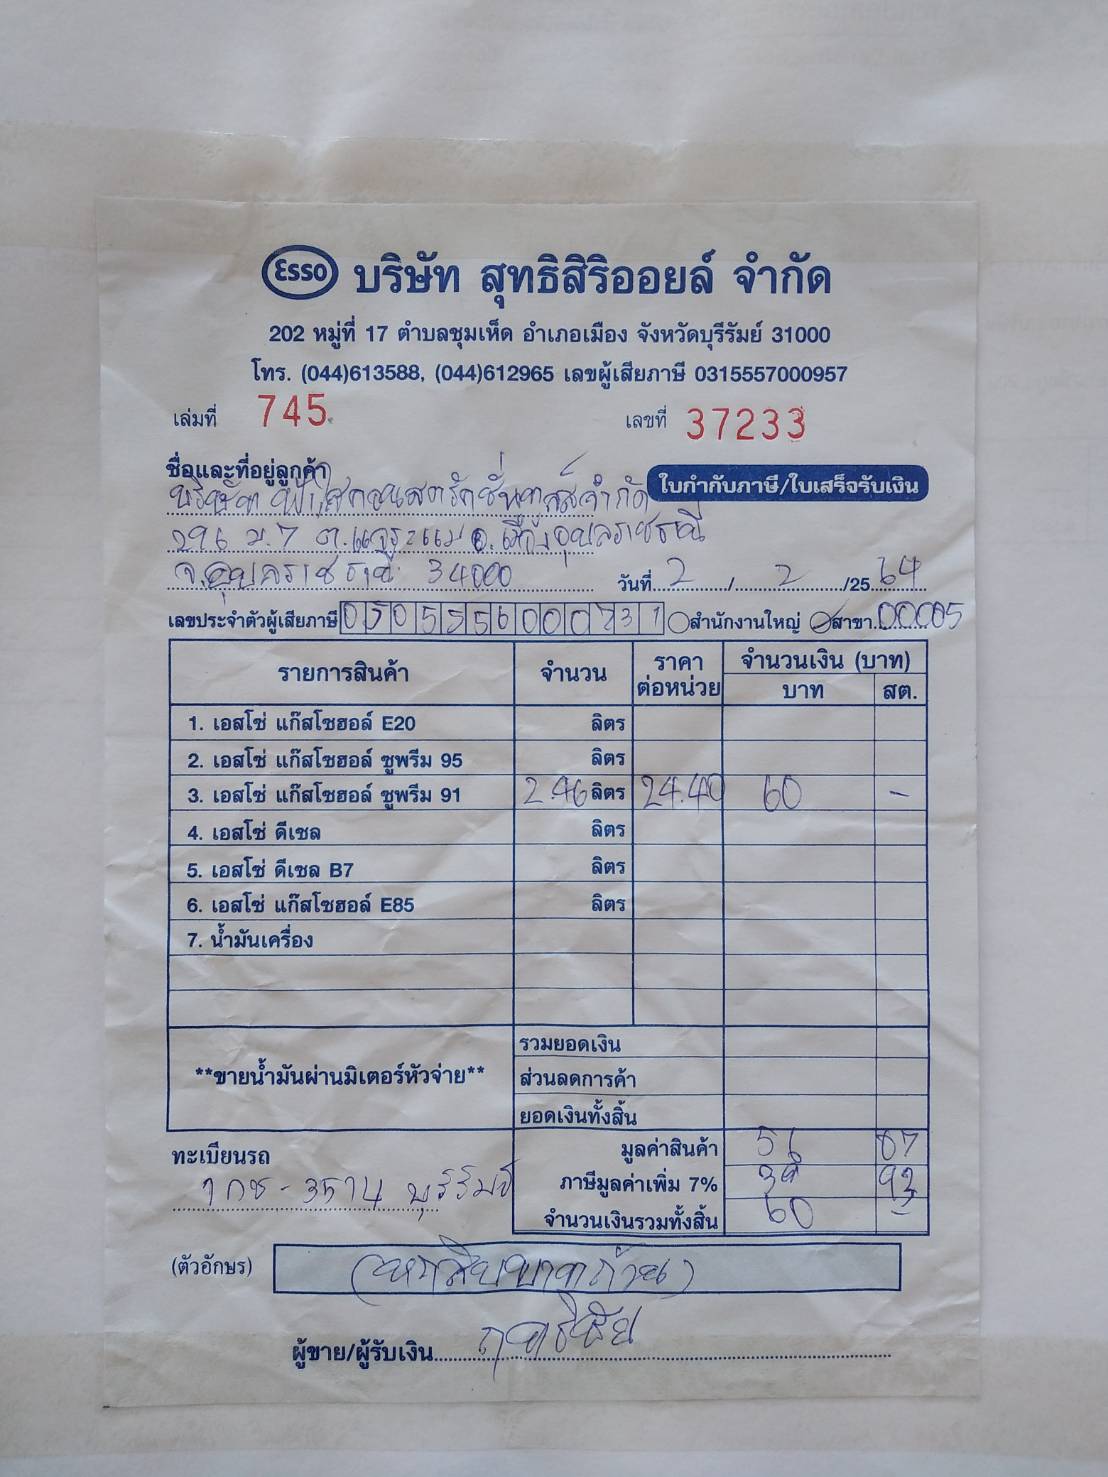 Esso บริษัท สุทธิสิริออยล์ จำกัด
202 หมู่ที่ 17 ตำบลชุมเห็ด อำเภอเมือง จังหวัดบุรีรัมย์ 31000
โทร. (044)613588, (044)612965 เลขผู้เสียภาษี 0315557000957
เล่มที่ 745 เลขที่ 37233
ชื่อและที่อยู่ลูกค้า
ใบกำกับภาษี/ใบเสร็จรับเงิน
บริษัท ฟ้าใสคอนสตรัคชั่นทูลส์จำกัด
296 ม.7 ต.แจระแม อ.เมืองอุบลราชธานี
จ.อุบลราชธานี 34000 วันที่ 2 / 2 /25 64
เลขประจำตัวผู้เสียภาษี สำนักงานใหญ่ สาขา 00005
รายการสินค้า จำนวน ราคาต่อหน่วย จำนวนเงิน (บาท)
บาท สต.
1. เอสโซ่ แก๊สโซฮอล์ E20 ลิตร
2. เอสโซ่ แก๊สโซฮอล์ ซูพรีม 95 ลิตร
3. เอสโซ่ แก๊สโซฮอล์ ซูพรีม 91 2.46 ลิตร 24.40 60 -
4. เอสโซ่ ดีเซล ลิตร
5. เอสโซ่ ดีเซล B7 ลิตร
6. เอสโซ่ แก๊สโซฮอล์ E85 ลิตร
7. น้ำมันเครื่อง
รวมยอดเงิน
**ขายน้ำมันผ่านมิเตอร์หัวจ่าย** ส่วนลดการค้า
ยอดเงินทั้งสิ้น
มูลค่าสินค้า 56 07
ทะเบียนรถ ภาษีมูลค่าเพิ่ม 7% 3 93
1กช-3514 บุรีรัมย์ จำนวนเงินรวมทั้งสิ้น 60 -
(ตัวอักษร) (หกสิบบาทถ้วน)
ผู้ขาย/ผู้รับเงิน